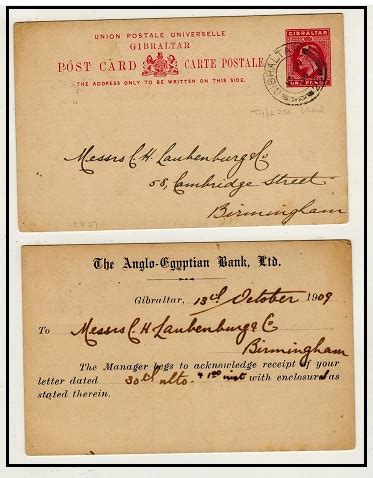 UNION POSTALE UNIVERSELLE
GIBRALTAR
POST CARD CARTE POSTALE
THE ADDRESS ONLY TO BE WRITTEN ON THIS SIDE.
GIBRALTAR
ONE PENNY
GIBRALTAR
Messrs C. H. Laubenburg & Co
58, Cambridge Street
Birmingham
The Anglo-Egyptian Bank, Ltd.
Gibraltar, 13th October 1909
To Messrs C H Laubenburg & Co
Birmingham
The Manager begs to acknowledge receipt of your
letter dated 30th ulto inst with enclosure as
stated therein.